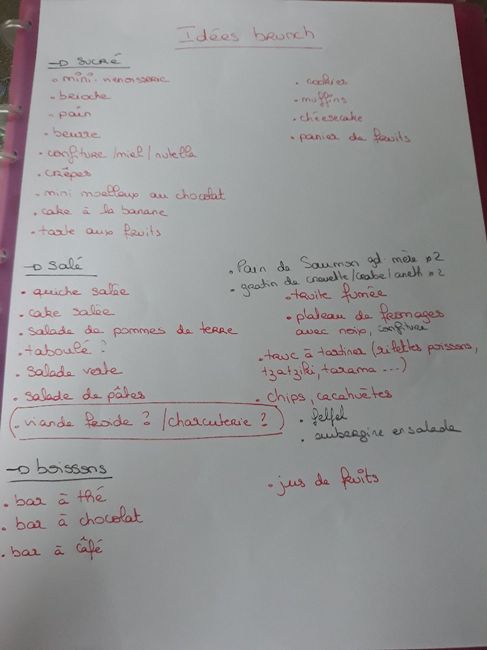 Idées brunch
→ sucré
• mini-viennoiserie
• brioche
• pain
• beurre
• confiture / miel / nutella
• crêpes
• mini moelleux au chocolat
• cake à la banane
• tarte aux fruits
• cookies
• muffins
• cheesecake
• panier de fruits
→ salé
• quiche salée
• cake salée
• salade de pommes de terre
• taboulé ?
• salade verte
• salade de pâtes
• viande froide ? / charcuterie ?
• Pain de Saumon gd. mère x2
• gratin de crevette / crabe / aneth x2
• truite fumée
• plateau de fromages
avec noix, confiture
• truc à tartiner (rillettes poissons,
tzatziki, tarama ...)
• chips, cacahuètes
• felfel
• aubergine en salade
→ boissons
• bar à thé
• bar à chocolat
• bar à câfé
• jus de fruits